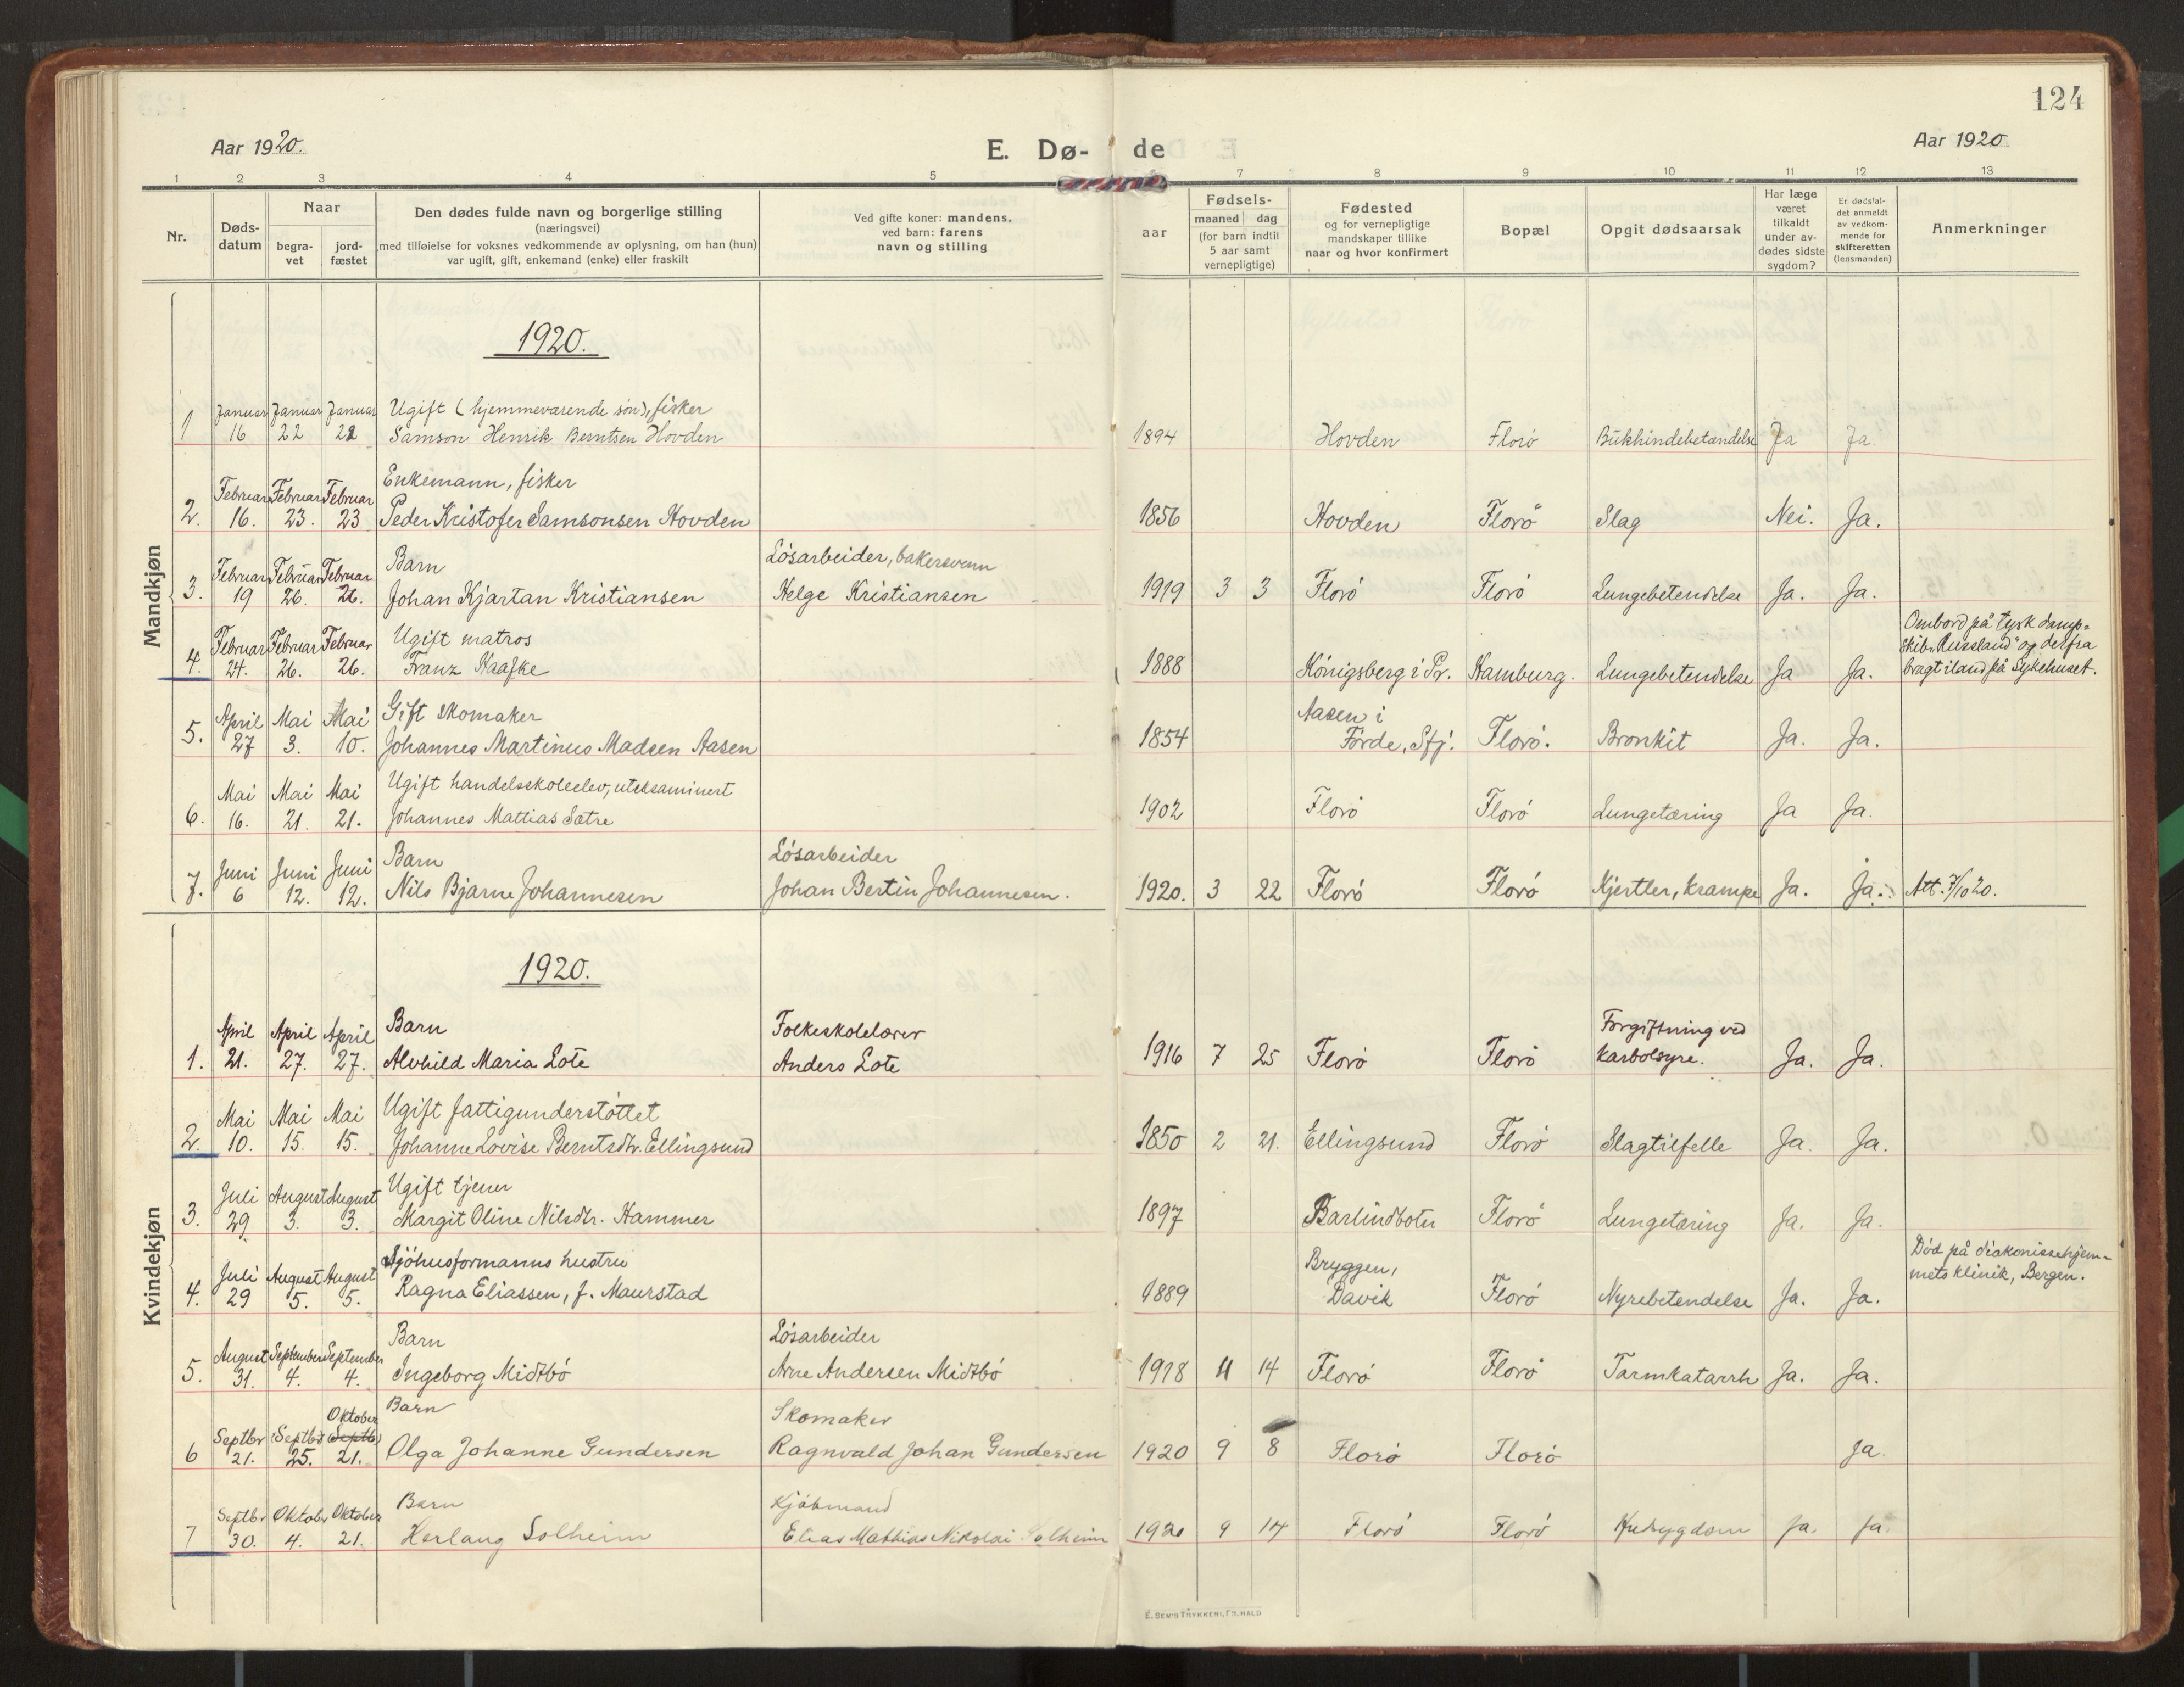 124
Aar 1920.
E. Dø- de
Aar 1920.
1 2 3 4 5 7 8 9 10 11 12 13
Nr.
Døds-
datum
Naar
begra-
vet
jord-
fæstet
Den dødes fulde navn og borgerlige stilling
(næringsvei)
med tilføielse for voksnes vedkommende av oplysning, om han (hun)
var ugift, gift, enkemand (enke) eller fraskilt
Ved gifte koner: mandens,
ved barn: farens
navn og stilling
Fødsels-
aar
maaned dag
(for barn indtil
5 aar samt
vernepligtige)
Fødested
og for vernepligtige
mandskaper tillike
naar og hvor konfirmert
Bopæl
Opgit dødsaarsak
Har læge
været
tilkaldt
under av-
dødes sidste
sygdom?
Er dødsfal-
det anmeldt
av vedkom-
mende for
skifteretten
(lensmanden)
Anmerkninger
Mandkjøn
1920.
Januar Januar Januar Ugift (hjemmeværende søn), fisker
1 16 22 22 Samson Henrik Berntsen Hovden 1894 Hovden Florø Bukhindebetændelse Ja Ja.
Februar Februar Februar Enkemann, fisker
2. 16. 23. 23 Peder Kristofer Samsonsen Hovden 1856 Hovden Florø Slag Nei. Ja.
Februar Februar Februar Barn Løsarbeider, bakersvenn
3. 19 26. 26. Johan Kjartan Kristiansen Helge Kristiansen 1919 3 3 Florø Florø Lungebetendelse Ja. Ja.
Februar Februar Februar Ugift matros Ombord på tysk damp-
skib "Russland" og derfra
4. 24. 26. 26. Franz Haafke 1888 Königsberg i Pr. Hamburg. Lungebetendelse Ja Ja. bragt iland på Sykehuset.
April Mai Mai Gift skomaker Aasen i
5. 27 3. 10. Johannes Martinus Madsen Aasen 1854 Førde, Sfj. Florø. Bronkit Ja. Ja.
Mai Mai Mai Ugift handelsskoleelev, uteksaminert
6. 16. 21. 21. Johannes Mattias Sætre 1902 Florø Florø Lungetæring Ja Ja.
Juni Juni Juni Barn Løsarbeider
7. 6 12. 12. Nils Bjarne Johannesen Johan Bertin Johannesen. 1920. 3 22 Florø Florø Kjertler, krampe Ja. Ja. Att. 7/10 20.
Kvindekjøn
1920.
April April April Barn Folkeskolelærer Forgiftning ved
1. 21. 27. 27. Alvhild Maria Lote Anders Lote 1916 7 25 Florø Florø karbolsyre. Ja. Ja.
Mai Mai Mai Ugift fattigunderstøttet
2. 10. 15. 15. Johanne Lovise Berntsdtr. Ellingsund 1850 2 21. Ellingsund Florø Slagtilfelle Ja. Ja.
Juli August August Ugift tjener
3. 29 3. 3. Margit Oline Nilsdtr. Hammer 1897 Barlindbotn Florø Lungetæring Ja. Ja.
Juli August August Sjøhusformanns hustru Bryggen, Død på diakonissehjem-
mets klinik, Bergen.
4. 29 5. 5. Ragna Eliassen, f. Maurstad 1889 Davik Florø Nyrebetendelse Ja. Ja.
August September September Barn Løsarbeider
5. 31. 4. 4. Ingeborg Midtbø Arne Andersen Midtbø 1918 11 14 Florø Florø Tarmkatarrh Ja. Ja.
Oktober Barn Skomaker
Septbr Septbr (Septb)
6 21. 25. 21. Olga Johanne Gundersen Ragnvald Johan Gundersen 1920 9 8 Florø Florø Ja.
Septbr Oktobr Oktober Barn Kjøbmand
7 30. 4. 21. Herlaug Solheim Elias Mathias Nikolai Solheim 1920 9 14 Florø Florø Ja. Ja.
E. SEM'S TRYKKERI, FR.HALD